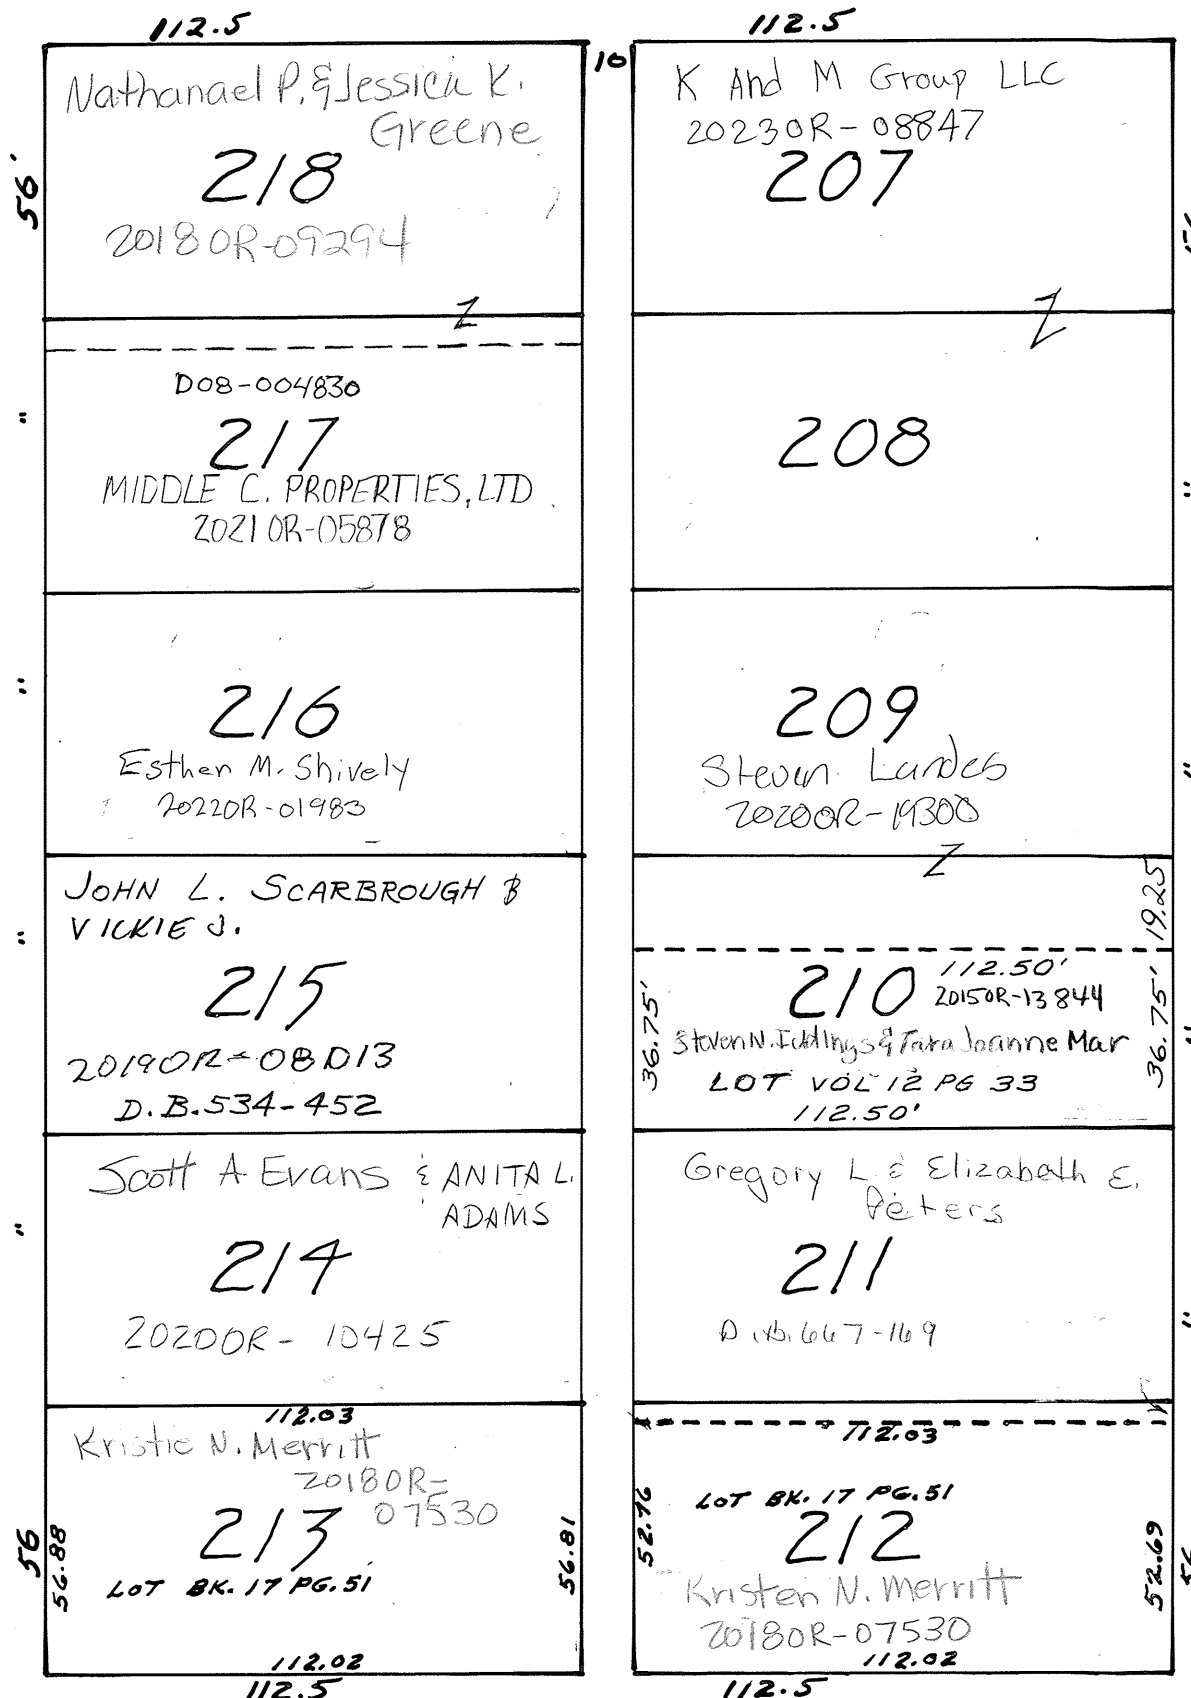 112.5
Nathanael P. & Jessica K.
Greene
56'
218
2018OR-09294
Z
D08-004830
217
MIDDLE C. PROPERTIES, LTD
2021OR-05878
"
216
Esther M. Shively
2022OR-01983
"
JOHN L. SCARBROUGH &
VICKIE J.
"
215
2019OR-08013
D.B.534-452
Scott A Evans & ANITA L.
ADAMS
"
214
2020OR-10425
112.03
Kristie N. Merritt
2018OR-
07530
213
56
56.88
56.81
LOT BK. 17 PG. 51
112.02
112.5
10
112.5
K And M Group LLC
2023OR-08847
207
56
Z
208
"
209
Steven Landes
"
Z
19.25
210
112.50'
2015OR-13844
36.75'
36.75'
"
Steven N. & Tara Joanne Mar
LOT VOL 12 PG 33
112.50'
Gregory L & Elizabeth E.
Peters
211
667-169
"
112.03
52.76
LOT BK. 17 PG. 51
212
52.69
56
Kristen N. Merritt
2018OR-07530
112.02
112.5